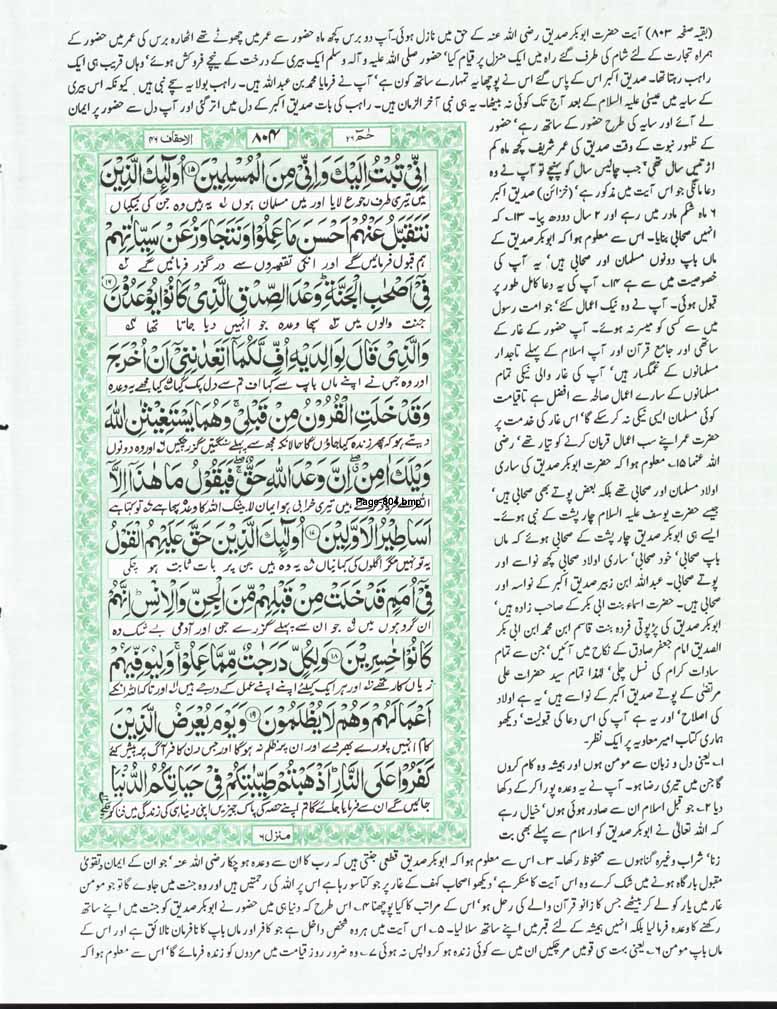 (بقیہ صفحہ ۸۰۳) آیت حضرت ابوبکر صدیق رضی اللہ عنہ کے حق میں نازل ہوئی۔ آپ دو برس کچھ ماہ حضور سے عمر میں چھوٹے تھے اٹھارہ برس کی عمر میں حضور کے
ہمراہ تجارت کے لئے شام کی طرف گئے راہ میں ایک منزل پر قیام کیا' حضور صلی اللہ علیہ و آلہ وسلم ایک بیری کے درخت کے نیچے فروکش ہوئے' وہاں قریب ہی ایک
راہب رہتا تھا۔ صدیق اکبر اس کے پاس گئے اس نے پوچھا یہ تمہارے ساتھ کون ہے' آپ نے فرمایا محمد بن عبداللہ ہیں۔ راہب بولا یہ سچے نبی ہیں' کیونکہ اس بیری
کے سایہ میں عیسیٰ علیہ السلام کے بعد آج تک کوئی نہ بیٹھا۔ یہ ہی نبی آخر الزمان ہیں۔ راہب کی بات صدیق اکبر کے دل میں اتر گئی اور آپ دل سے حضور پر ایمان
لے آئے اور سایہ کی طرح حضور کے ساتھ رہے' حضور
کے ظہور نبوت کے وقت صدیق کی عمر شریف کچھ ماہ کم
اڑتیس سال تھی' جب چالیس سال کو پہنچے تو آپ نے وہ
دعا مانگی جو اس آیت میں مذکور ہے' (خزائن) صدیق اکبر
۶ ماہ شکم مادر میں رہے اور ۲ سال دودھ پیا۔ ۱۳۔ کہ
انہیں صحابی بنایا۔ اس سے معلوم ہوا کہ ابوبکر صدیق کے
ماں باپ دونوں مسلمان اور صحابی ہیں' یہ آپ کی
خصوصیت میں سے ہے ۱۴۔ آپ کی یہ دعا کامل طور پر
قبول ہوئی۔ آپ نے وہ نیک اعمال کئے' جو امت رسول
میں سے کسی کو میسر نہ ہوئے۔ آپ حضور کے غار کے
ساتھی اور جامع قرآن اور آپ اسلام کے پہلے تاجدار
مسلمانوں کے غمگسار ہیں' آپ کی غار والی نیکی تمام
مسلمانوں کے سارے اعمال صالحہ سے افضل ہے تاقیامت
کوئی مسلمان ایسی نیکی نہ کر سکے گا' اس غار کی خدمت پر
حضرت عمر اپنے سب اعمال قربان کرنے کو تیار تھے' رضی
اللہ عنہما ۱۵۔ معلوم ہوا کہ حضرت ابوبکر صدیق کی ساری
اولاد مسلمان اور صحابی تھے بلکہ بعض پوتے بھی صحابی ہیں'
جیسے حضرت یوسف علیہ السلام چار پشت کے نبی ہوئے۔
ایسے ہی ابوبکر صدیق چار پشت کے صحابی ہوئے کہ ماں
باپ صحابی' خود صحابی' ساری اولاد صحابی کچھ نواسے اور
پوتے صحابی۔ عبداللہ ابن زبیر صدیق اکبر کے نواسہ اور
صحابی ہیں۔ حضرت اسماء بنت ابی بکر کے صاحب زادہ ہیں'
ابوبکر صدیق کی پڑپوتی فردہ بنت قاسم ابن محمد ابن ابی بکر
الصدیق امام جعفر صادق کے نکاح میں آئیں' جن سے تمام
سادات کرام کی نسل چلی' لہٰذا تمام سید حضرات علی
مرتضیٰ کے پوتے صدیق اکبر کے نواسے ہیں' یہ ہے اولاد
کی اصلاح' اور یہ ہے آپ کی اس دعا کی قبولیت' دیکھو
ہماری کتاب امیر معاویہ پر ایک نظر۔
۱۔ یعنی دل و زبان سے مومن ہوں اور ہمیشہ وہ کام کروں
گا جن میں تیری رضا ہو۔ آپ نے یہ وعدہ پورا کر کے دکھا
دیا ۲۔ جو قبل اسلام ان سے صادر ہوئی ہوں' خیال رہے
کہ اللہ تعالیٰ نے ابوبکر صدیق کو اسلام سے پہلے بھی بت
حٰمٓ ۲۶
۸۰۴
الاحقاف ۴۶
اِنِّیْ تُبْتُ اِلَیْكَ وَاِنِّیْ مِنَ الْمُسْلِمِیْنَ ۱۵ اُولٰٓئِكَ الَّذِیْنَ
میں تیری طرف رجوع لایا اور میں مسلمان ہوں یہ ہیں وہ جن کی نیکیاں
نَتَقَبَّلُ عَنْهُمْ اَحْسَنَ مَا عَمِلُوْا وَنَتَجَاوَزُ عَنْ سَیِّاٰتِهِمْ
ہم قبول فرمائیں گے اور انکی تقصیروں سے در گزر فرمائیں گے
فِیْۤ اَصْحٰبِ الْجَنَّةِؕ وَعْدَ الصِّدْقِ الَّذِیْ كَانُوْا یُوْعَدُوْنَ ۱۶
جنت والوں میں سچا وعدہ جو انہیں دیا جاتا تھا
وَالَّذِیْ قَالَ لِوَالِدَیْهِ اُفٍّ لَّكُمَاۤ اَتَعِدٰنِنِیْۤ اَنْ اُخْرَجَ
اور وہ جس نے اپنے ماں باپ سے کہا اف تم سے دل پک گیا کیا مجھے یہ وعدہ
وَقَدْ خَلَتِ الْقُرُوْنُ مِنْ قَبْلِیْۚ وَهُمَا یَسْتَغِیْثٰنِ اللّٰهَ
دیتے ہو کہ پھر زندہ کیا جاؤں گا حالانکہ مجھ سے پہلے سنگتیں گزر چکیں اور وہ دونوں
وَیْلَكَ اٰمِنْ ۖ اِنَّ وَعْدَ اللّٰهِ حَقٌّ ۚ فَیَقُوْلُ مَا هٰذَاۤ اِلَّاۤ
Page-804.bmp
تیری خرابی ہو ایمان لا بیشک اللہ کا وعدہ سچا ہے تو کہتا ہے
اَسَاطِیْرُ الْاَوَّلِیْنَ ۱۷ اُولٰٓئِكَ الَّذِیْنَ حَقَّ عَلَیْهِمُ الْقَوْلُ
یہ تو نہیں مگر اگلوں کی کہانیاں یہ وہ ہیں جن پر بات ثابت ہو چکی
فِیْۤ اُمَمٍ قَدْ خَلَتْ مِنْ قَبْلِهِمْ مِّنَ الْجِنِّ وَالْاِنْسِؕ اِنَّهُمْ
ان گروہوں میں جو ان سے پہلے گزرے جن اور آدمی بے شک وہ
كَانُوْا خٰسِرِیْنَ ۱۸ وَلِكُلٍّ دَرَجٰتٌ مِّمَّا عَمِلُوْاۚ وَلِیُوَفِّیَهُمْ
زیاں کار تھے اور ہر ایک کیلئے اپنے اپنے عمل کے درجے ہیں اور تاکہ اللہ انکے
اَعْمَالَهُمْ وَهُمْ لَا یُظْلَمُوْنَ ۱۹ وَیَوْمَ یُعْرَضُ الَّذِیْنَ
کام انہیں پورے بھر دے اور ان پر ظلم نہ ہوگا اور جس دن کافر آگ پر پیش کئے
كَفَرُوْا عَلَی النَّارِؕ اَذْهَبْتُمْ طَیِّبٰتِكُمْ فِیْ حَیَاتِكُمُ الدُّنْیَا
جائیں گے ان سے فرمایا جائے گا تم اپنے حصہ کی پاک چیزیں اپنی دنیا ہی کی زندگی میں فنا کر چکے
منزل ۶
زنا' شراب وغیرہ گناہوں سے محفوظ رکھا۔ ۳۔ اس سے معلوم ہوا کہ ابوبکر صدیق قطعی جنتی ہیں کہ رب کا ان سے وعدہ ہو چکا رضی اللہ عنہ' جو ان کے ایمان و تقویٰ
مقبول بارگاہ ہونے میں شک کرے وہ اس آیت کا منکر ہے' دیکھو اصحاب کہف کے غار پر جو کتا سو رہا ہے اس پر اللہ کی رحمتیں ہیں اور وہ جنت میں جاوے گا تو جو مومن
غار میں یار کو لے کر بیٹھے جس کا زانو قرآن والے کی رحل ہو' اس کے مراتب کا کیا پوچھنا ۴۔ اس طرح کہ دنیا ہی میں حضور نے ابوبکر صدیق کو جنت میں اپنے ساتھ
رکھنے کا وعدہ فرما لیا بلکہ انہیں ہمیشہ کے لئے قبر میں اپنے ساتھ سلا لیا۔ ۵۔ اس آیت میں ہر وہ شخص داخل ہے جو کافر اور ماں باپ کا نافرمان نالائق ہے اور اس کے
ماں باپ مومن ۶۔ یعنی بہت سی قومیں مر چکیں ان میں سے کوئی زندہ ہو کر واپس نہ ہوئی ۷۔ وہ ضرور روز قیامت میں مردوں کو زندہ فرمائے گا' اس سے معلوم ہوا کہ